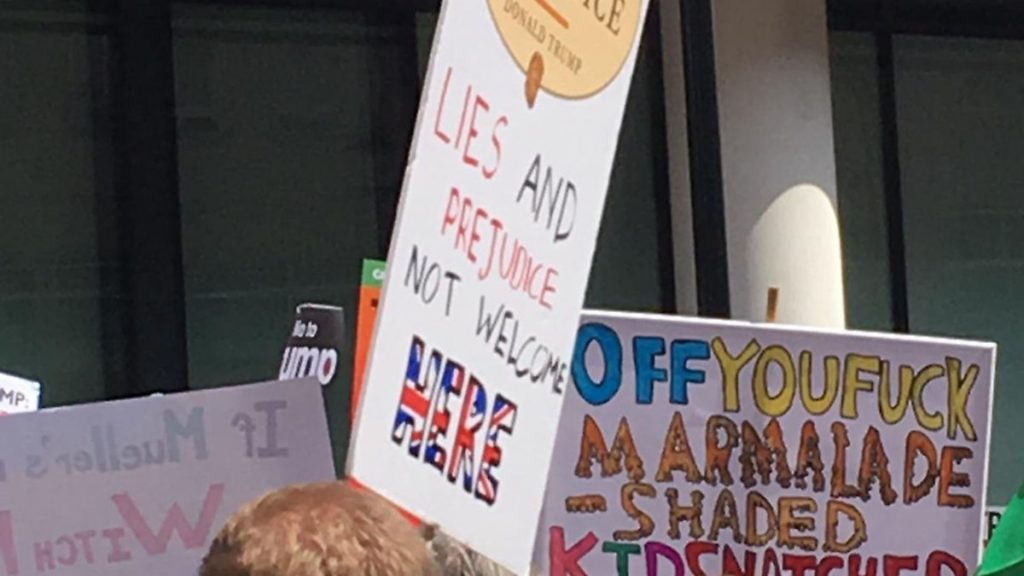 ICE
DONALD TRUMP
LIES AND
PREJUDICE
NOT WELCOME
HERE
OFF YOU FUCK
MARMALADE
-SHADED
KIDSNATCHER
If Mueller's
WITCH
lo to
ump
MP: